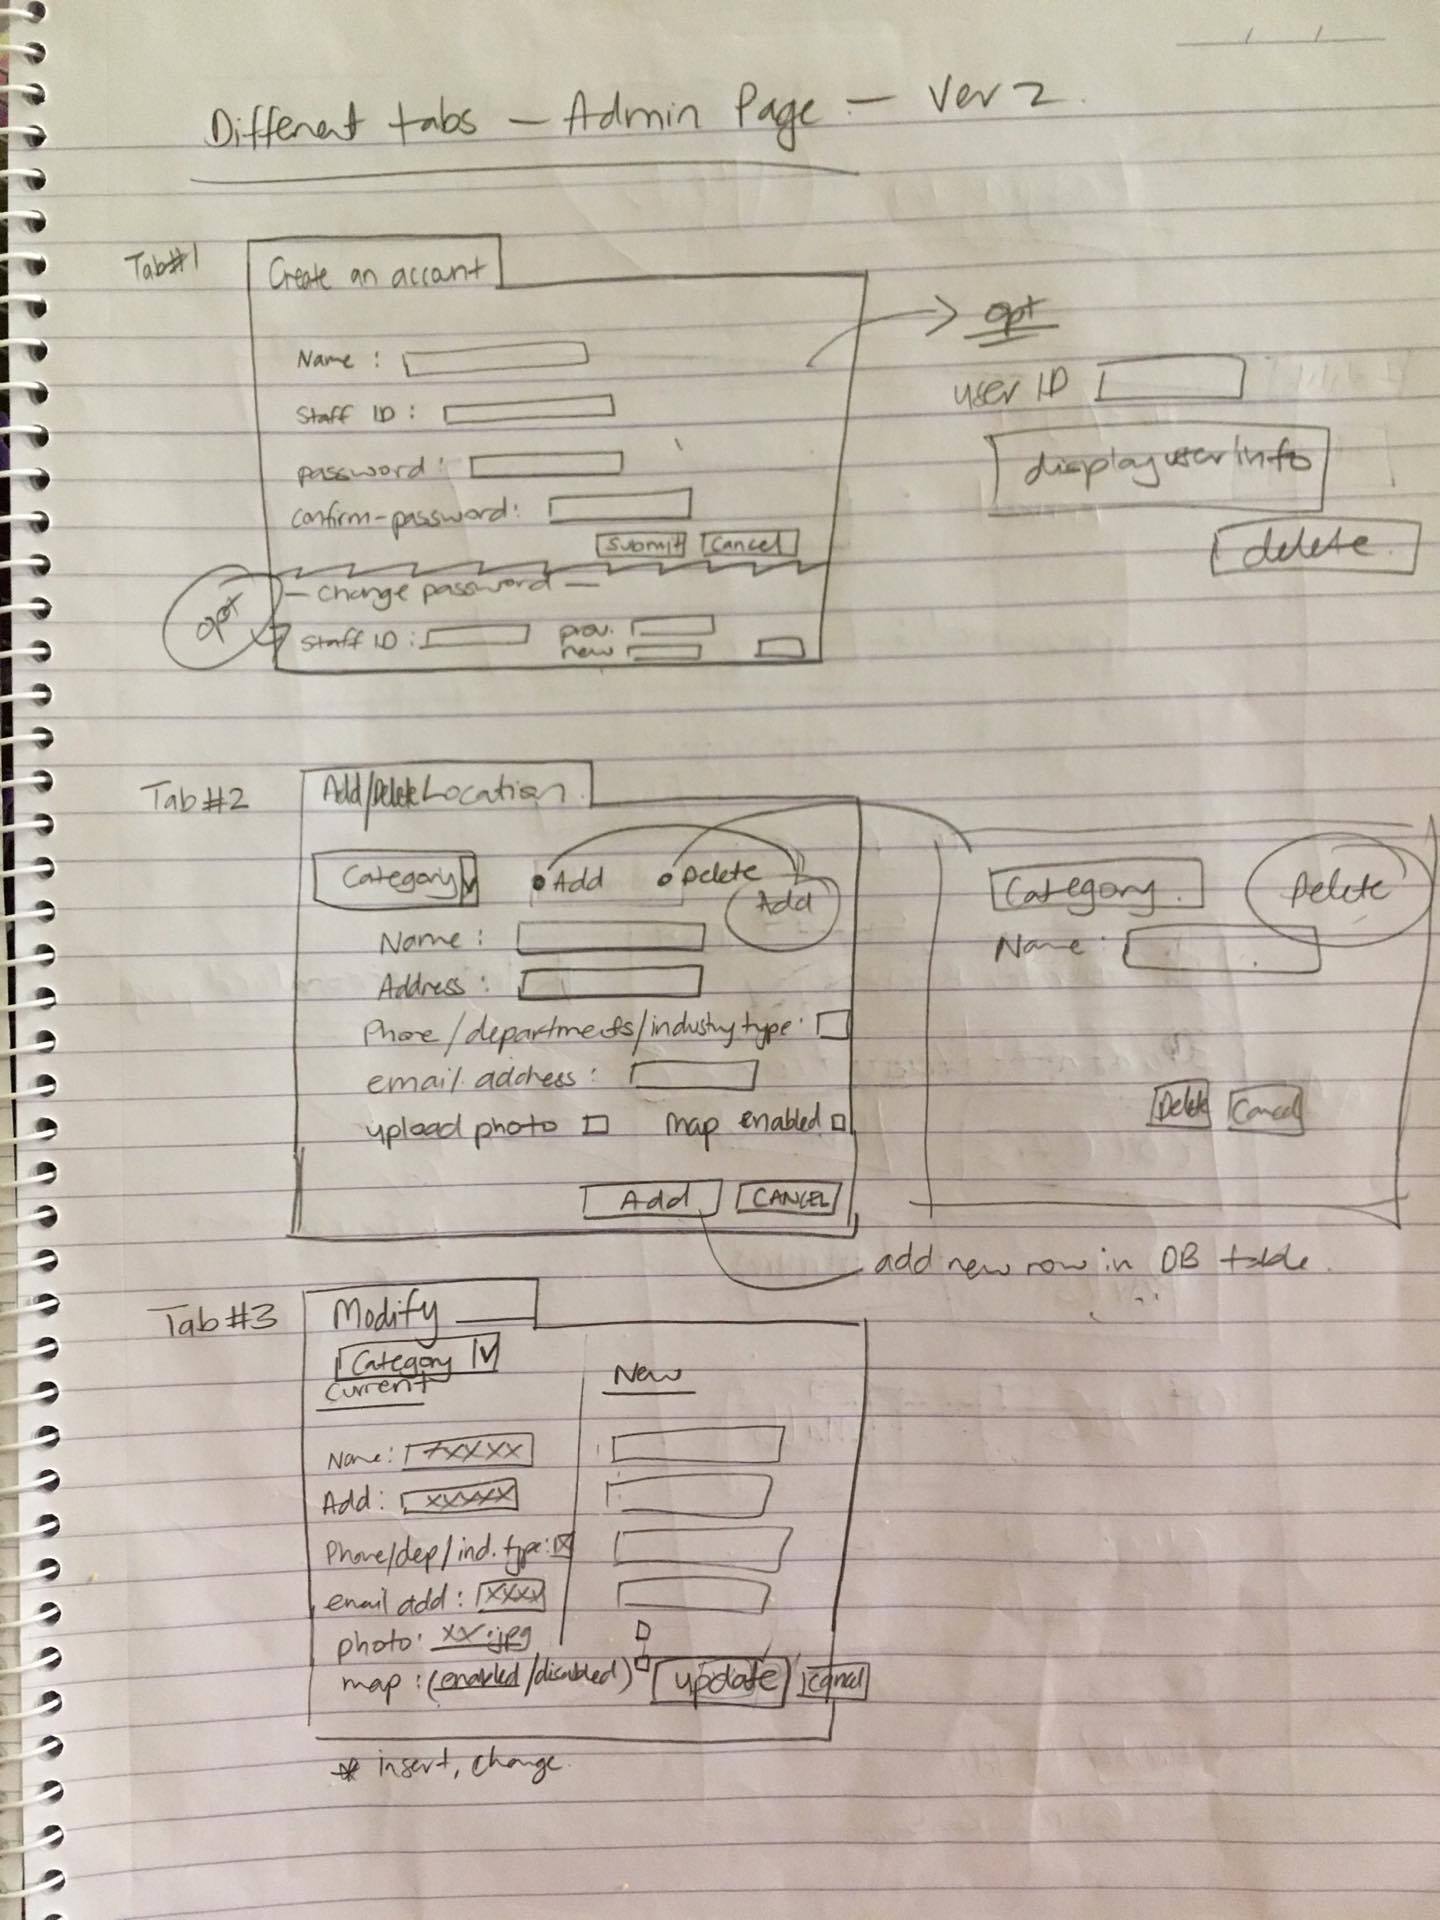 Different tabs — Admin Page — Ver 2.
Tab#1
Create an account
Name :
Staff ID :
password :
Confirm-password :
Submit Cancel
opt
— Change password —
Staff ID : prev.
new
opt
user ID
display user info
delete
Tab #2
Add/Delete Location
Category Add Delete
Add
Name :
Address :
Phone / departments / industry type :
email address :
upload photo map enabled
Add CANCEL
add new row in DB table.
Category Delete
Name :
Delete Cancel
Tab #3
Modify
Category
Current New
Name : xxxxx
Add : xxxxx
Phone/dep/ind. type : x
email add : xxxx
photo : xx.jpg
map : (enabled/disabled) update cancel
* insert, change.